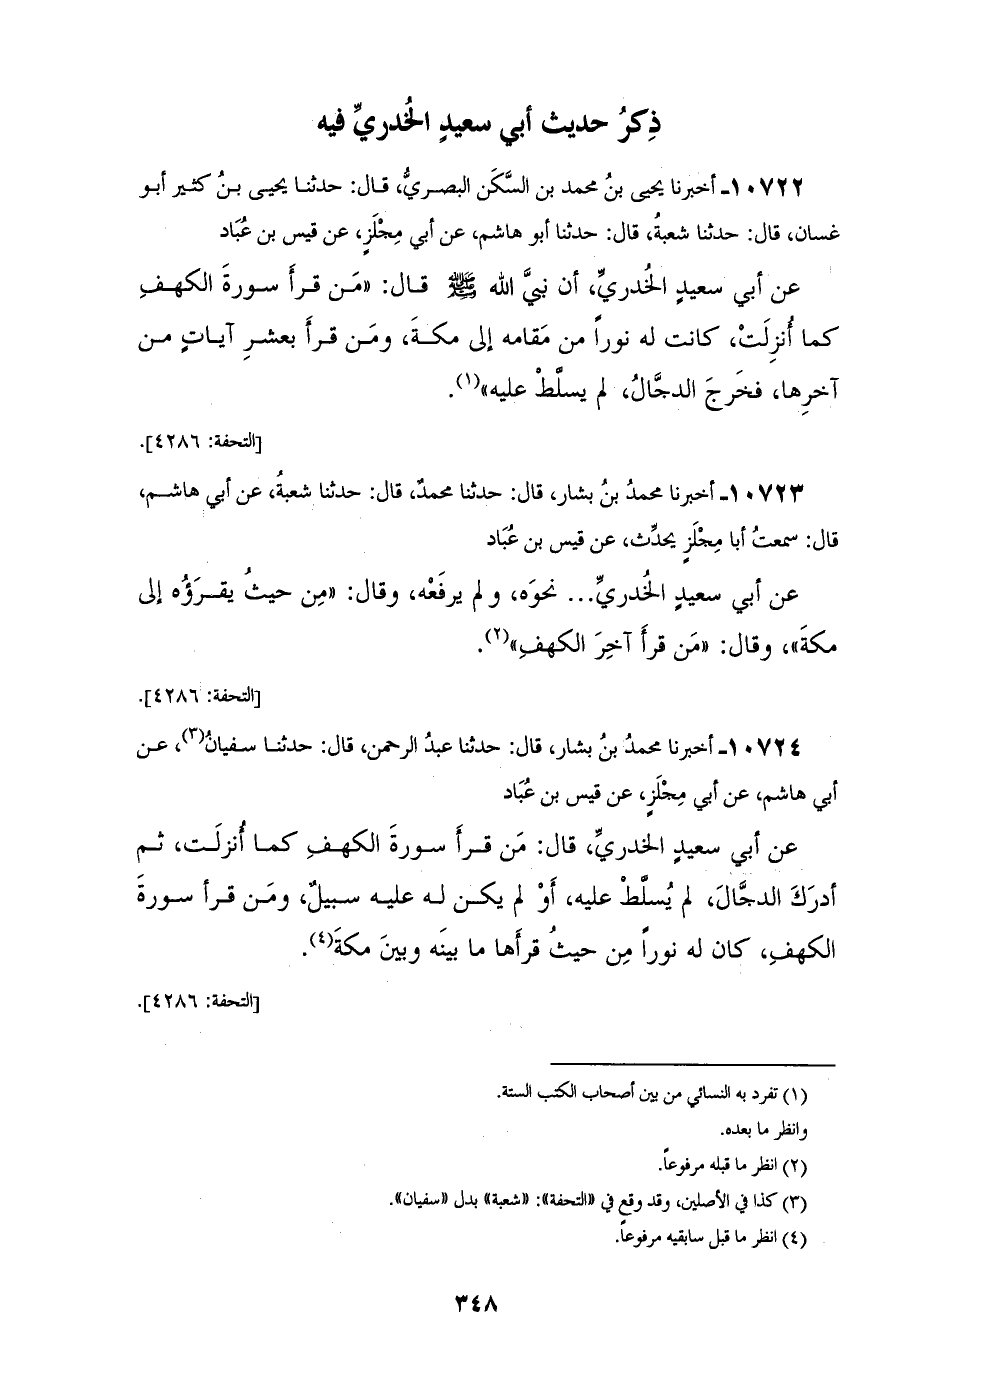 ذِكرُ حديث أبي سعيدٍ الخُدريِّ فيه
١٠٧٢٢ـ أخبرنا يحيى بنُ محمد بن السَّكَن البصريُّ، قال: حدثنا يحيى بنُ كثير أبو
غسان، قال: حدثنا شعبةُ، قال: حدثنا أبو هاشم، عن أبي مِجْلَزٍ، عن قيس بن عُبَاد
عن أبي سعيدٍ الخُدريِّ، أن نبيَّ الله ﷺ قال: «مَن قرأَ سورةَ الكهفِ
كما أُنزِلَتْ، كانت له نوراً من مَقامه إلى مكةَ، ومَن قرأَ بعشرِ آياتٍ من
آخرِها، فخَرجَ الدجَّالُ، لم يسلَّطْ عليه»(١).
[التحفة: ٤٢٨٦].
١٠٧٢٣ـ أخبرنا محمدُ بنُ بشار، قال: حدثنا محمدٌ، قال: حدثنا شعبةُ، عن أبي هاشم،
قال: سمعتُ أبا مِجْلَزٍ يحدِّث، عن قيس بن عُبَاد
عن أبي سعيدٍ الخُدريِّ... نحوَه، ولم يرفَعْه، وقال: «مِن حيثُ يقرَؤُه إلى
مكةَ»، وقال: «مَن قرأَ آخِرَ الكهفِ»(٢).
[التحفة: ٤٢٨٦].
١٠٧٢٤ـ أخبرنا محمدُ بنُ بشار، قال: حدثنا عبدُ الرحمن، قال: حدثنا سفيانُ(٣)، عن
أبي هاشم، عن أبي مِجْلَزٍ، عن قيس بن عُبَاد
عن أبي سعيدٍ الخدريِّ، قال: مَن قرأَ سورةَ الكهفِ كما أُنزلَت، ثم
أدرَكَ الدجَّالَ، لم يُسلَّطْ عليه، أَوْ لم يكن له عليه سبيلٌ، ومَن قرأ سورةَ
الكهفِ، كان له نوراً مِن حيثُ قرأَها ما بينَه وبينَ مكةَ(٤).
[التحفة: ٤٢٨٦].
(١) تفرد به النسائي من بين أصحاب الكتب الستة.
وانظر ما بعده.
(٢) انظر ما قبله مرفوعاً.
(٣) كذا في الأصلين، وقد وقع في «التحفة»: «شعبة» بدل «سفيان».
(٤) انظر ما قبل سابقيه مرفوعاً.
٣٤٨